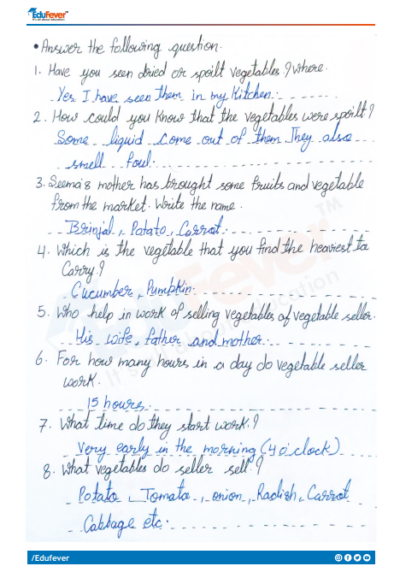 EduFever
• Answer the following question.
1. Have you seen dried or spoilt vegetables? Where.
Yes I have seen them in my Kitchen.
2. How could you know that the vegetables were spoilt?
Some liquid come out of them They also
smell foul.
3. Seema's mother has brought some fruits and vegetable
from the market. Write the name.
Brinjal, Potato, Carrot.
4. Which is the vegetable that you find the heaviest to
Carry?
Cucumber, Pumpkin.
5. Who help in work of selling vegetables of vegetable seller.
His wife, father and mother.
6. For how many hours in a day do vegetable seller
work.
15 hours.
7. What time do they start work?
Very early in the morning (4 o'clock)
8. What vegetables do seller sell?
Potato, Tomato, onion, Radish, Carrot
Cabbage etc.
/Edufever